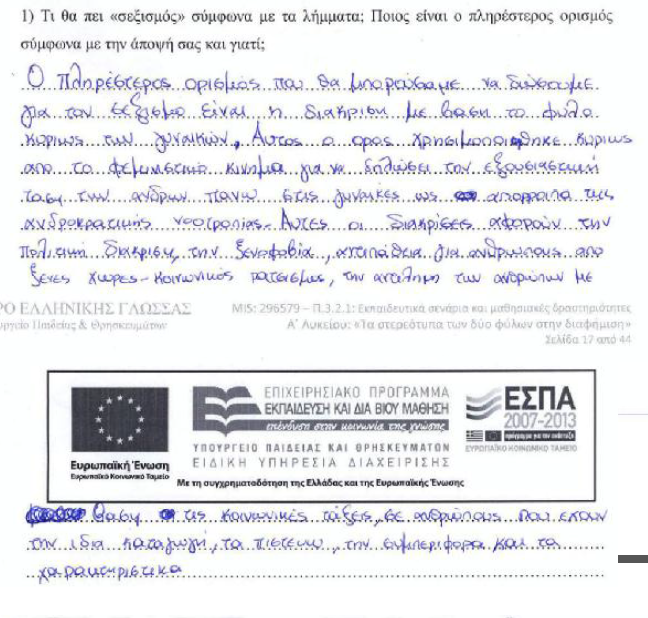 1) Τι θα πει «σεξισμός» σύμφωνα με τα λήμματα; Ποιος είναι ο πληρέστερος ορισμός
σύμφωνα με την άποψή σας και γιατί;
Ο πληρέστερος ορισμός που θα μπορούσαμε να δώσουμε
για τον σεξισμο είναι η διακριση με βαση το φυλο
κυριως των γυναικών, Αυτος ο ορος χρησιμοποιηθηκε κυριως
απο το φεμινιστικο κινημα για να δηλώσει την εξουσιαστικη
ταση των ανδρων πανω στις γυναικες ως απορροια της
ανδροκρατικης νοοτροπιας. Αυτες οι διακρισεις αφορούν την
πολιτικη διακριση, την ξενοφοβια, αντιπάθεια για ανθρωπους απο
ξενες χωρες - κοινωνικος ρατσισμος, την αντιληψη των ανθρώπων με
ΡΟ ΕΛΛΗΝΙΚΗΣ ΓΛΩΣΣΑΣ
υργείο Παιδείας & Θρησκευμάτων
MIS: 296579 – Π.3.2.1: Εκπαιδευτικά σενάρια και μαθησιακές δραστηριότητες
Α΄ Λυκείου: «Τα στερεότυπα των δύο φύλων στην διαφήμιση»
Σελίδα 17 από 44
ΕΠΙΧΕΙΡΗΣΙΑΚΟ ΠΡΟΓΡΑΜΜΑ
ΕΚΠΑΙΔΕΥΣΗ ΚΑΙ ΔΙΑ ΒΙΟΥ ΜΑΘΗΣΗ
επένδυση στην κοινωνία της γνώσης
ΥΠΟΥΡΓΕΙΟ ΠΑΙΔΕΙΑΣ ΚΑΙ ΘΡΗΣΚΕΥΜΑΤΩΝ
ΕΙΔΙΚΗ ΥΠΗΡΕΣΙΑ ΔΙΑΧΕΙΡΙΣΗΣ
ΕΣΠΑ
2007-2013
πρόγραμμα για την ανάπτυξη
ΕΥΡΩΠΑΪΚΟ ΚΟΙΝΩΝΙΚΟ ΤΑΜΕΙΟ
Ευρωπαϊκή Ένωση
Ευρωπαϊκό Κοινωνικό Ταμείο
Με τη συγχρηματοδότηση της Ελλάδας και της Ευρωπαϊκής Ένωσης
βαση τις κοινωνικές τάξεις, σε ανθρώπους που εχουν
την ιδια καταγωγη, τα πιστευω, την συμπεριφορα και τα
χαρακτηριστικα